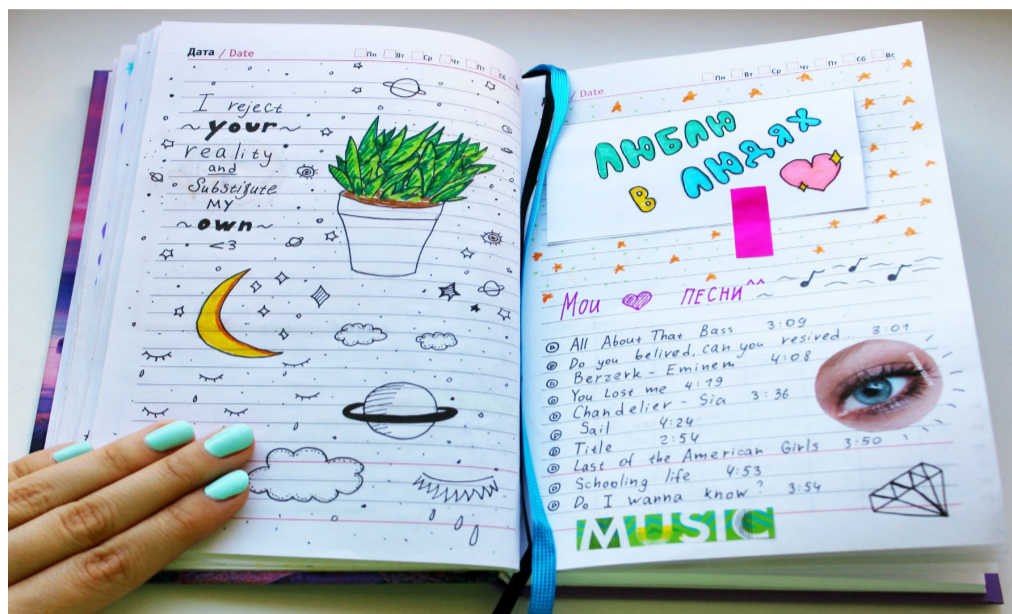 Дата / Date
Пн Вт Ср Чт Пт Сб
I reject
~your~
reality
and
Substitute
MY
~own~
<3
/ Date
Пн Вт Ср Чт Пт Сб Вс
ЛЮБЛЮ
В ЛЮДЯХ
Мои ПЕСНИ^^
All About That Bass 3:09
Do you belived, can you resived... 3:01
Berzerk - Eminem 4:08
You Lost me 4:19
Chandelier - Sia 3:36
Sail 4:24
Title 2:54
Last of the American Girls 3:50
Schooling life 4:53
Do I wanna know? 3:54
MUSIC